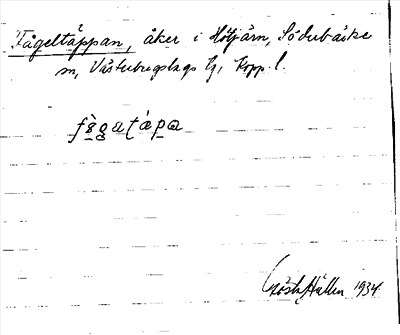 Fågeltäppan, åker i Hötjärn, Söderbärke
sn, Västerbergslags tg, Kopp. l.
fɢ̀gatápa
Gösta Hallén 1934